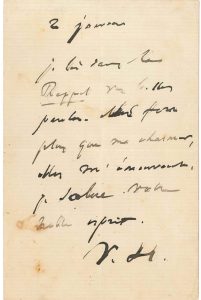 2 janvier
je lis dans le
Rappel vos belles
paroles. Elles font
plus que me charmer,
elles m'émeuvent.
je salue votre
noble esprit.
V. H.